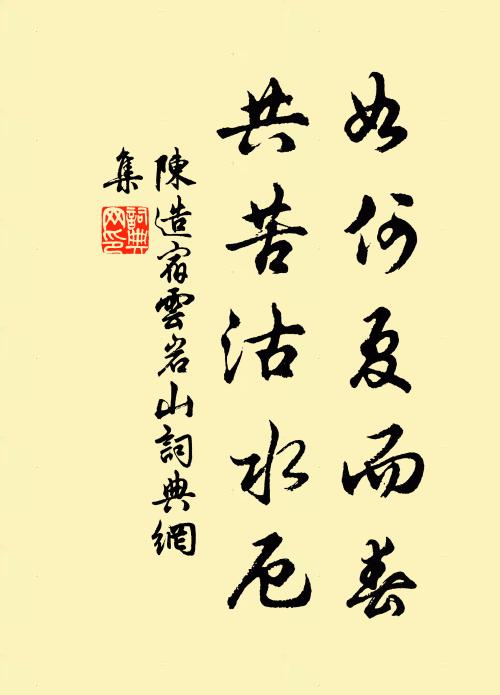 如何夏而春
共苦沽水厄
陳造宿雲岩山詞典網
集
詞典网印